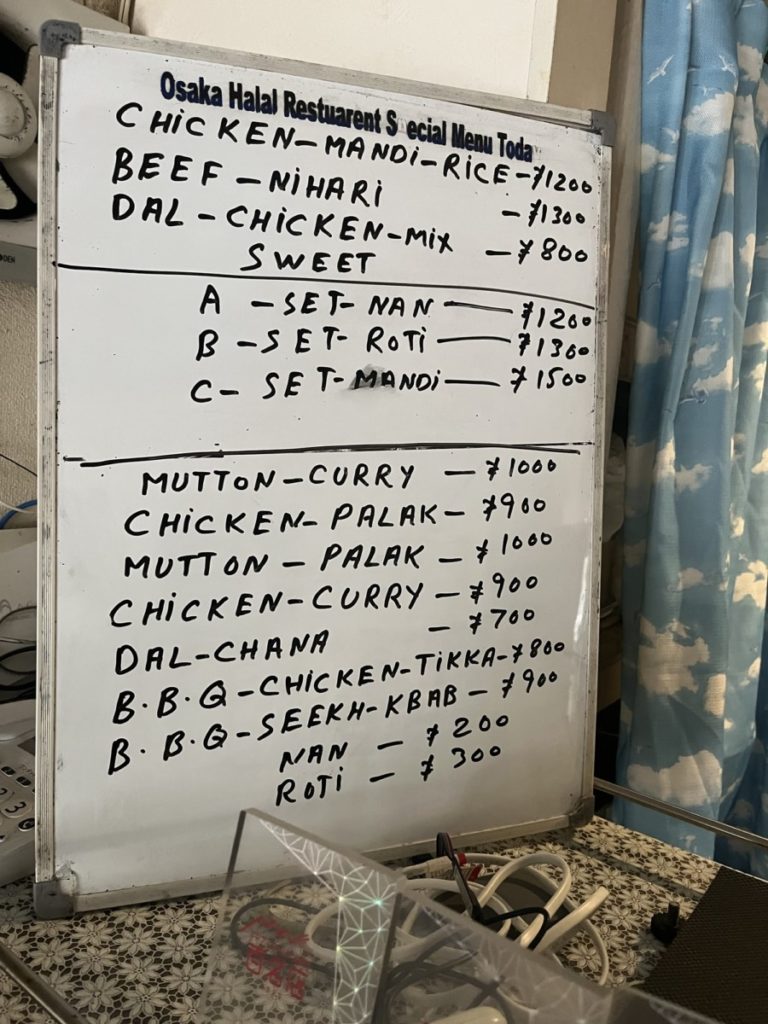 Osaka Halal Restuarent S ecial Menu Toda
CHICKEN-MANDI-RICE-¥1200
BEEF-NIHARI -¥1300
DAL-CHICKEN-MIX -¥800
SWEET
A -SET-NAN — ¥1200
B -SET-ROTI — ¥1300
C- SET-MANDI — ¥1500
MUTTON-CURRY -¥1000
CHICKEN-PALAK- ¥900
MUTTON - PALAK - ¥1000
CHICKEN-CURRY - ¥900
DAL-CHANA - ¥700
B.B.Q-CHICKEN-TIKKA-¥800
B.B.Q-SEEKH-KBAB- ¥900
NAN - ¥200
ROTI - ¥300